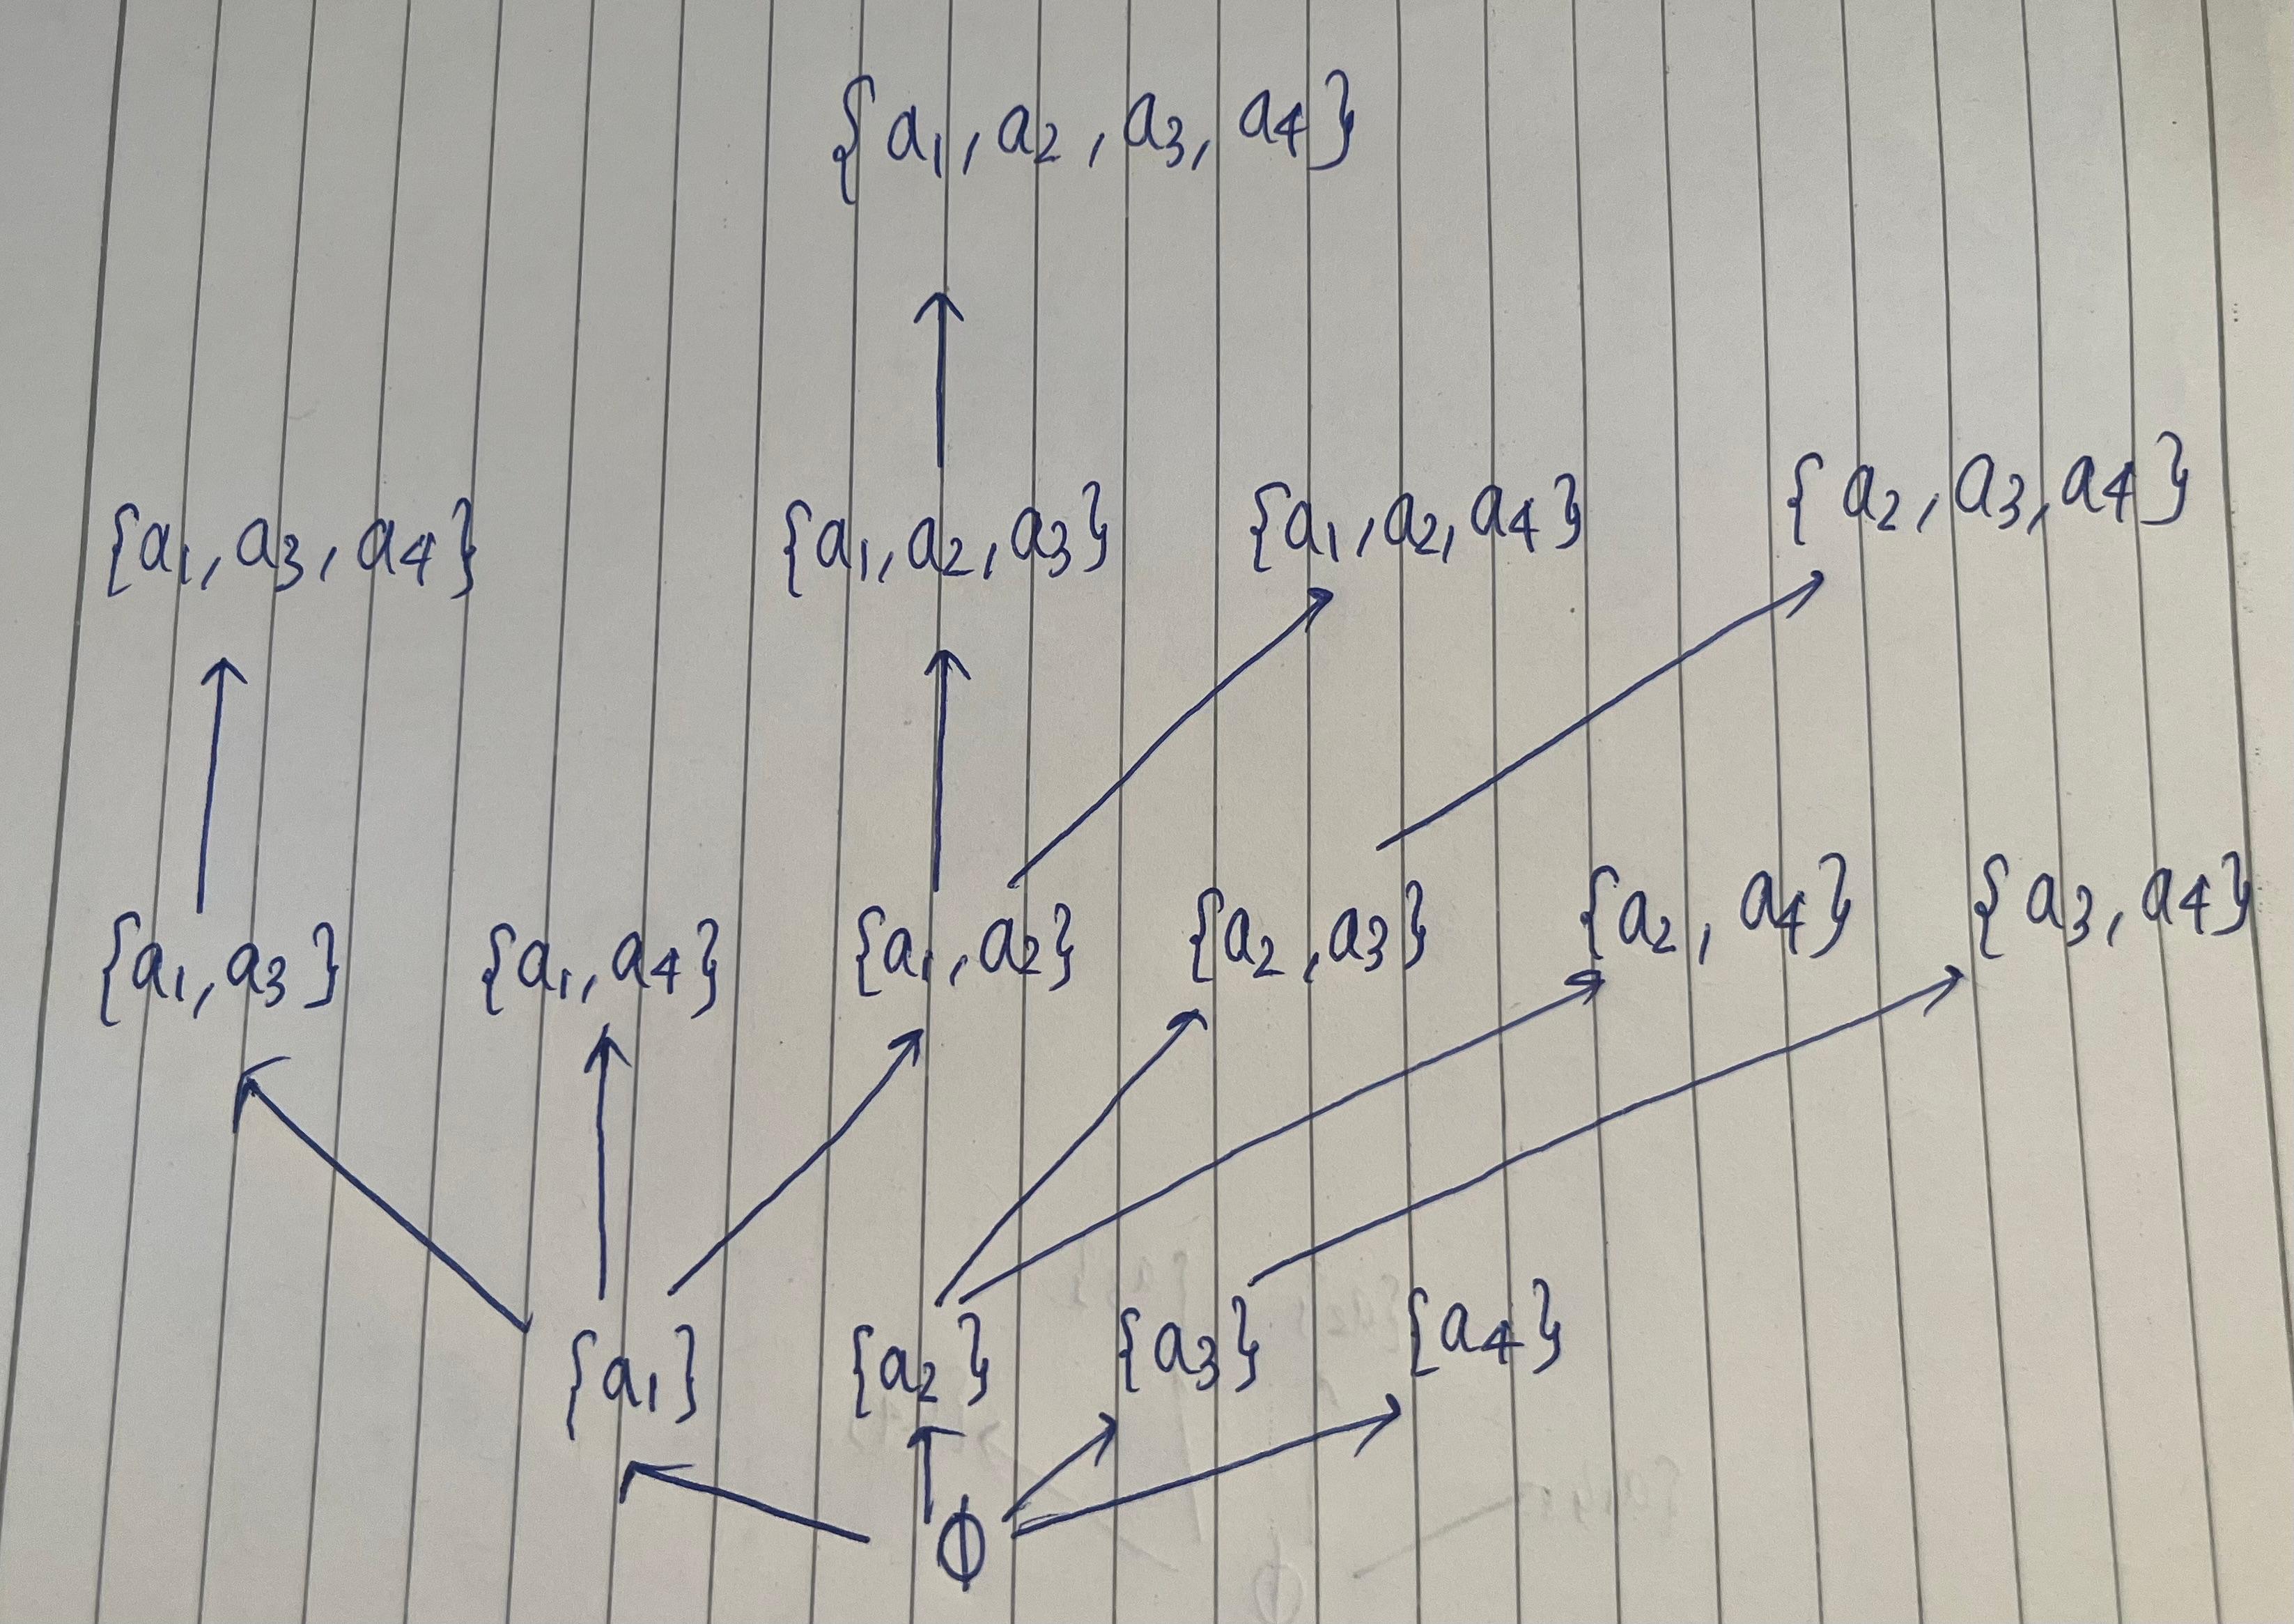 {a1, a2, a3, a4}
{a1, a3, a4} {a1, a2, a3} {a1, a2, a4} {a2, a3, a4}
{a1, a3} {a1, a4} {a1, a2} {a2, a3} {a2, a4} {a3, a4}
{a1} {a2} {a3} {a4}
ϕ